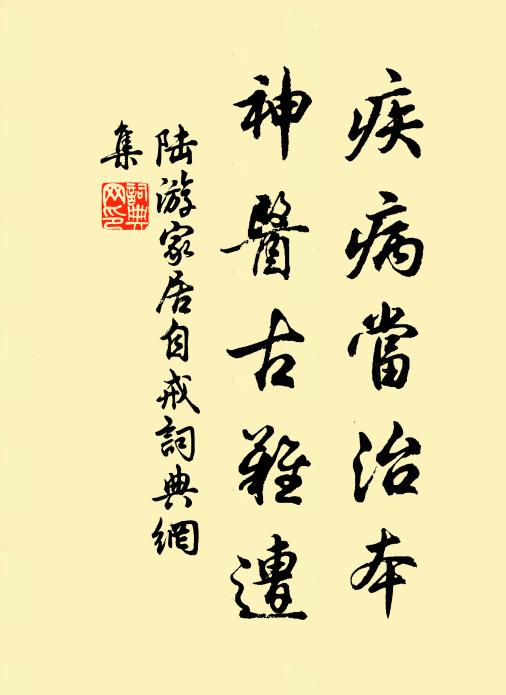 疾病當治本
神醫古難遭
陸游家居自戒詞典網
集
詞典網印